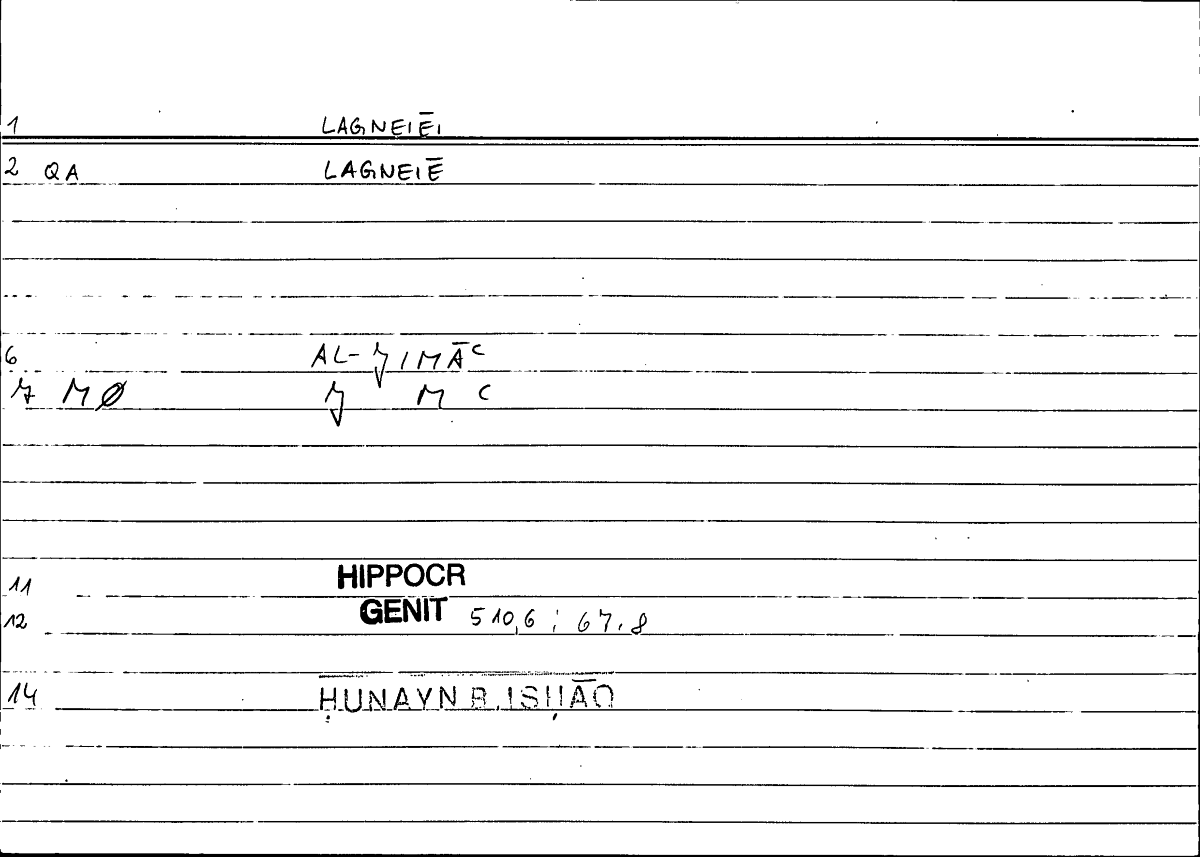 1 LAGNEIĒI
2 QA LAGNEIĒ
6 AL-ǦIMĀʿ
7 MØ Ǧ M ʿ
11 HIPPOCR
12 GENIT 510,6 ; 67.8
14 ḤUNAYN B. ISḤĀQ